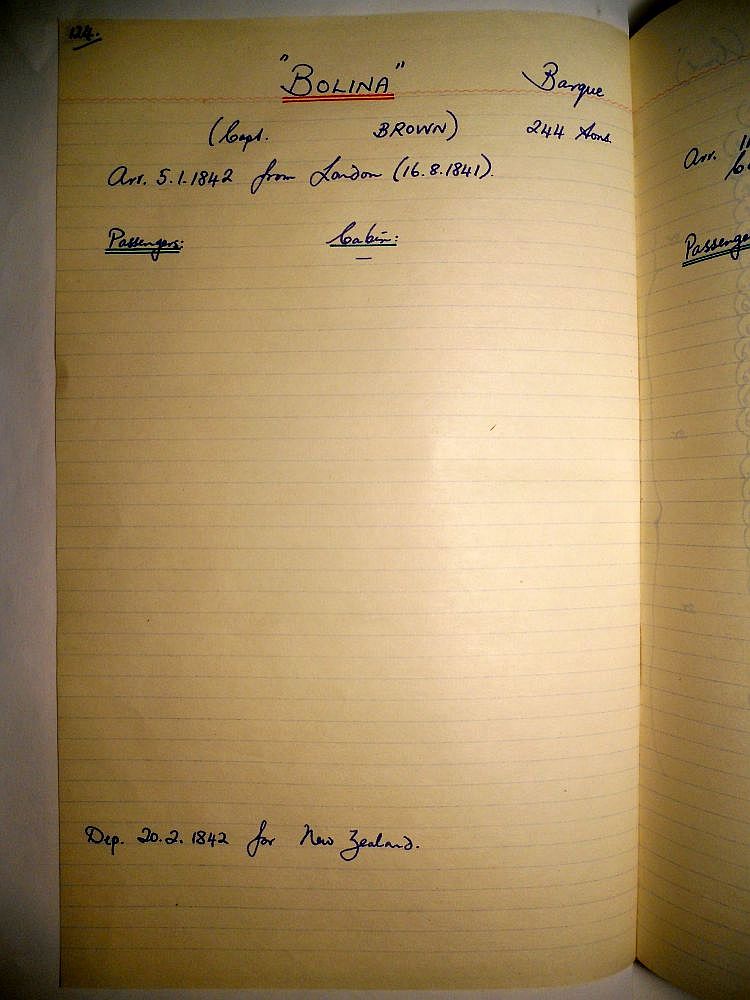 124.
"BOLINA" Barque
(Capt. BROWN) 244 tons.
Arr. 5.1.1842 from London (16.8.1841).
Passengers: Cabin:
—
Dep. 20.2.1842 for New Zealand.
Arr.
Passenge